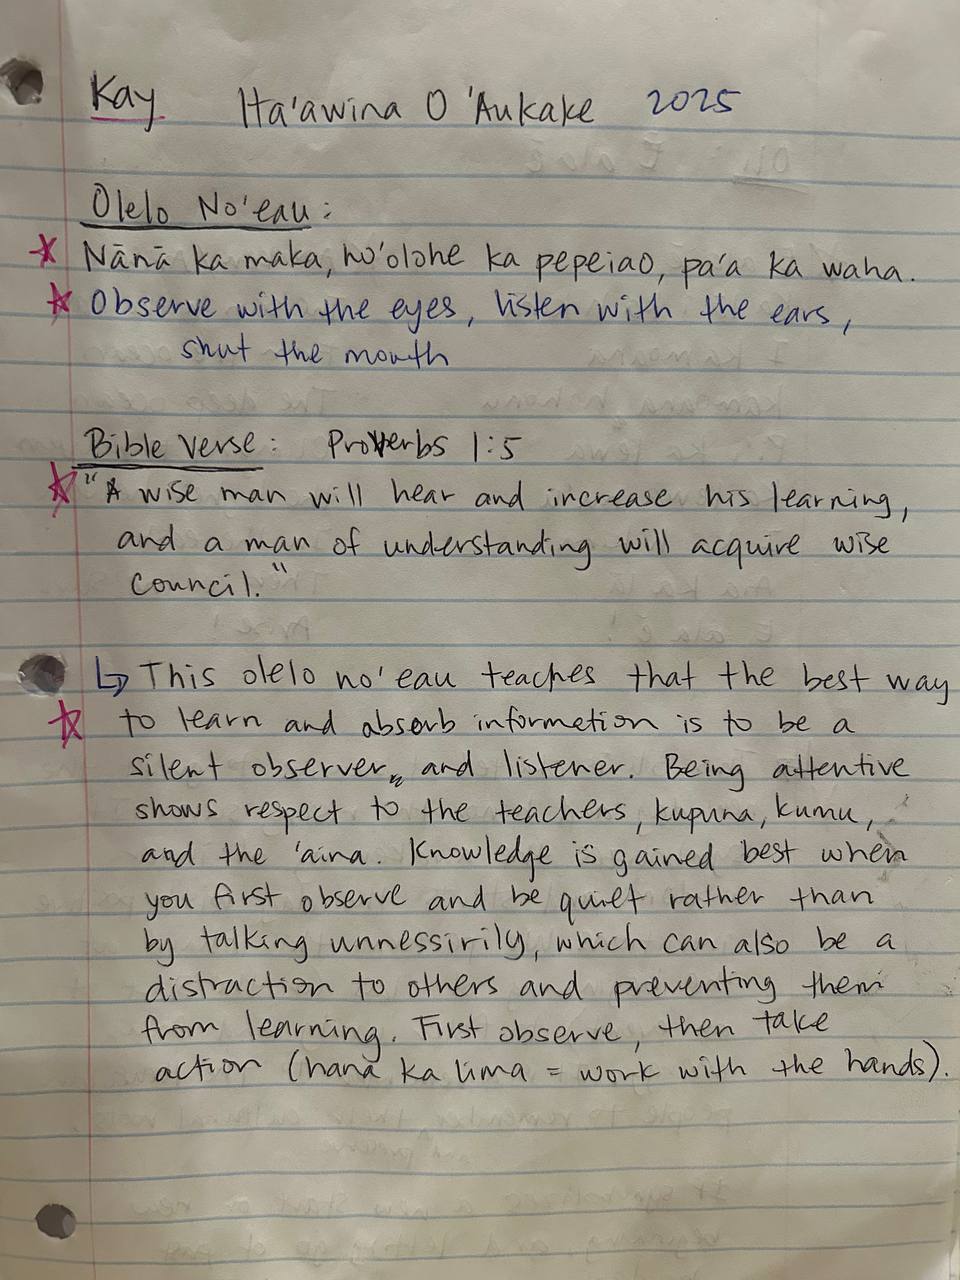 Kay Ha'awina O 'Aukake 2025
Olelo No'eau:
Nānā ka maka, ho'olohe ka pepeiao, pa'a ka waha.
Observe with the eyes, listen with the ears,
shut the mouth
Bible Verse: Proverbs 1:5
"A wise man will hear and increase his learning,
and a man of understanding will acquire wise
council."
↳ This olelo no'eau teaches that the best way
to learn and absorb informetion is to be a
silent observer, and listener. Being attentive
shows respect to the teachers, kupuna, kumu,
and the 'aina. Knowledge is gained best when
you first observe and be quiet rather than
by talking unnessirily, which can also be a
distraction to others and preventing them
from learning. First observe, then take
action (hana ka lima = work with the hands).